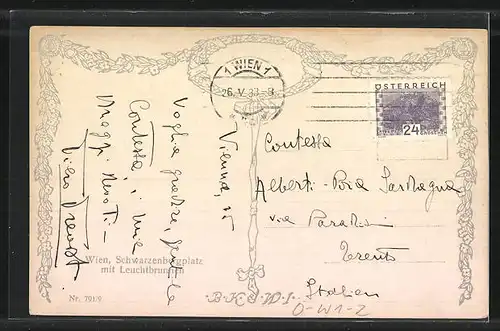 1 WIEN 1
26. V. 33-8
ÖSTERREICH
24
GROSCHEN
Vienna, 25
Voglia gradire, gentile
Contessa, i miei
omaggi devoti -
Contessa
Alberti-Poia Sardagna
via Paradisi
Trento
Italien
Wien, Schwarzenbergplatz
mit Leuchtbrunnen
Nr. 791/9
B.K.W.I.
O-W1-2